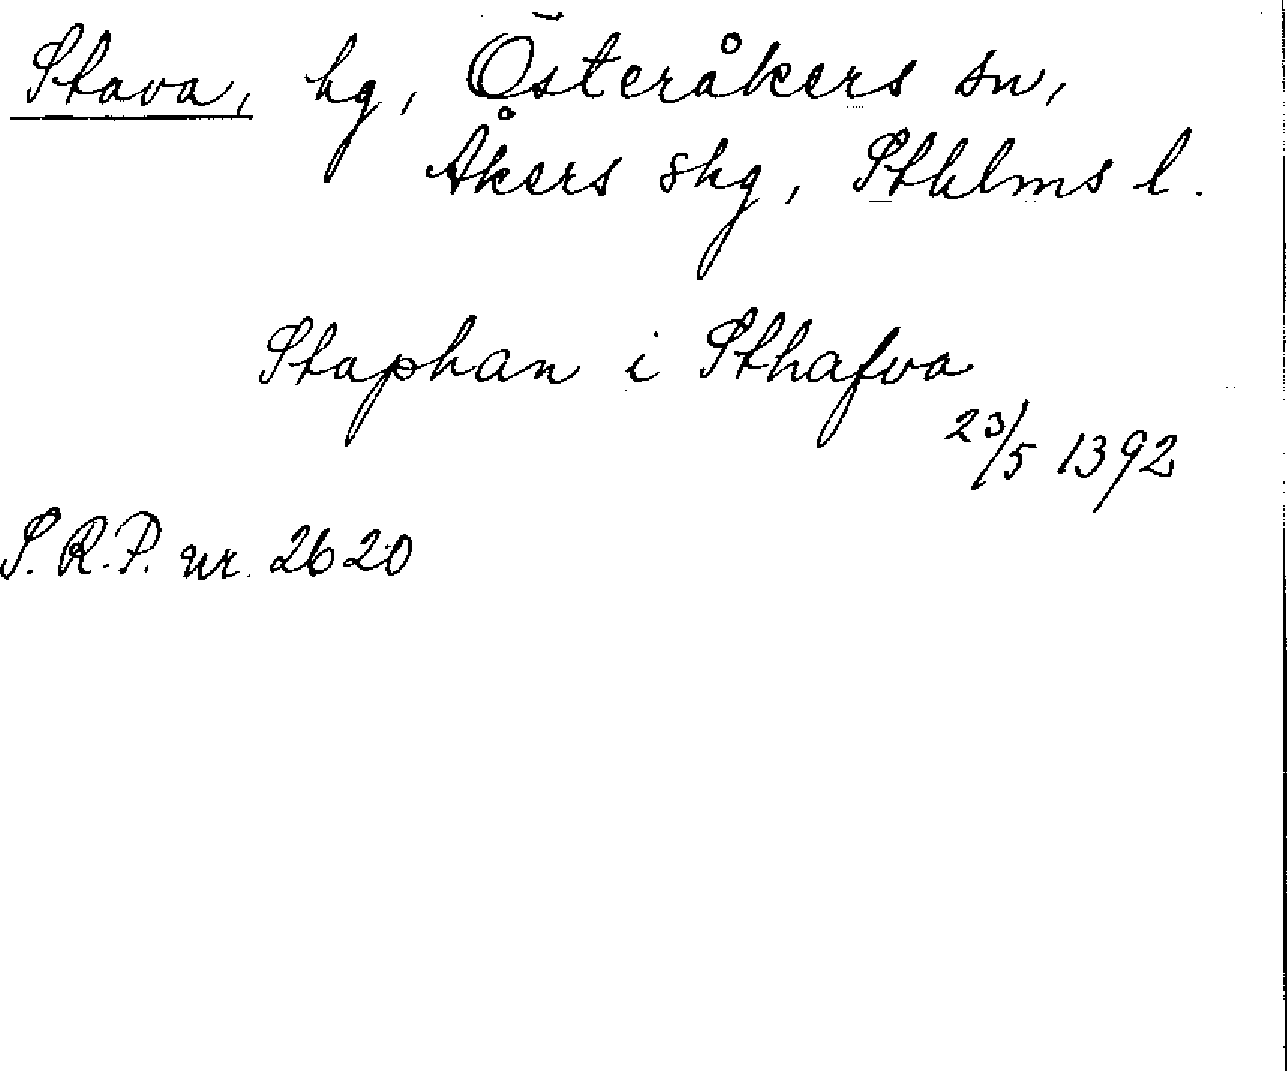 Stava, hg, Österåkers sn,
Åkers skg, Sthlms l.
Staphan i Sthafva
23/5 1392
S.R.P. nr. 2620